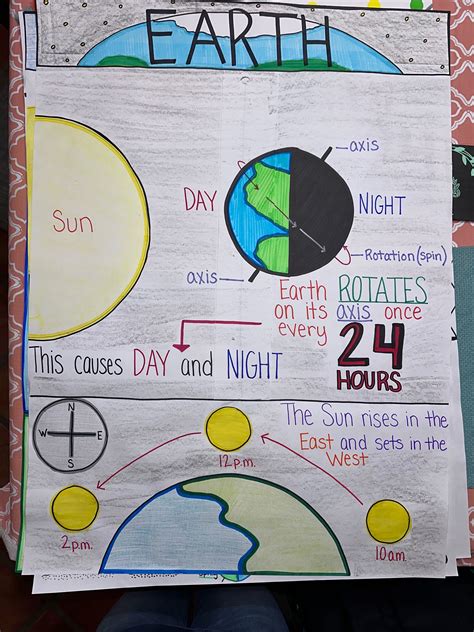 EARTH
axis
DAY
NIGHT
Sun
Rotation (spin)
axis
Earth ROTATES
on its axis once
every 24
HOURS
This causes DAY and NIGHT
N
W E
S
The Sun rises in the
East and sets in the
West
12 p.m.
2 p.m.
10 am.